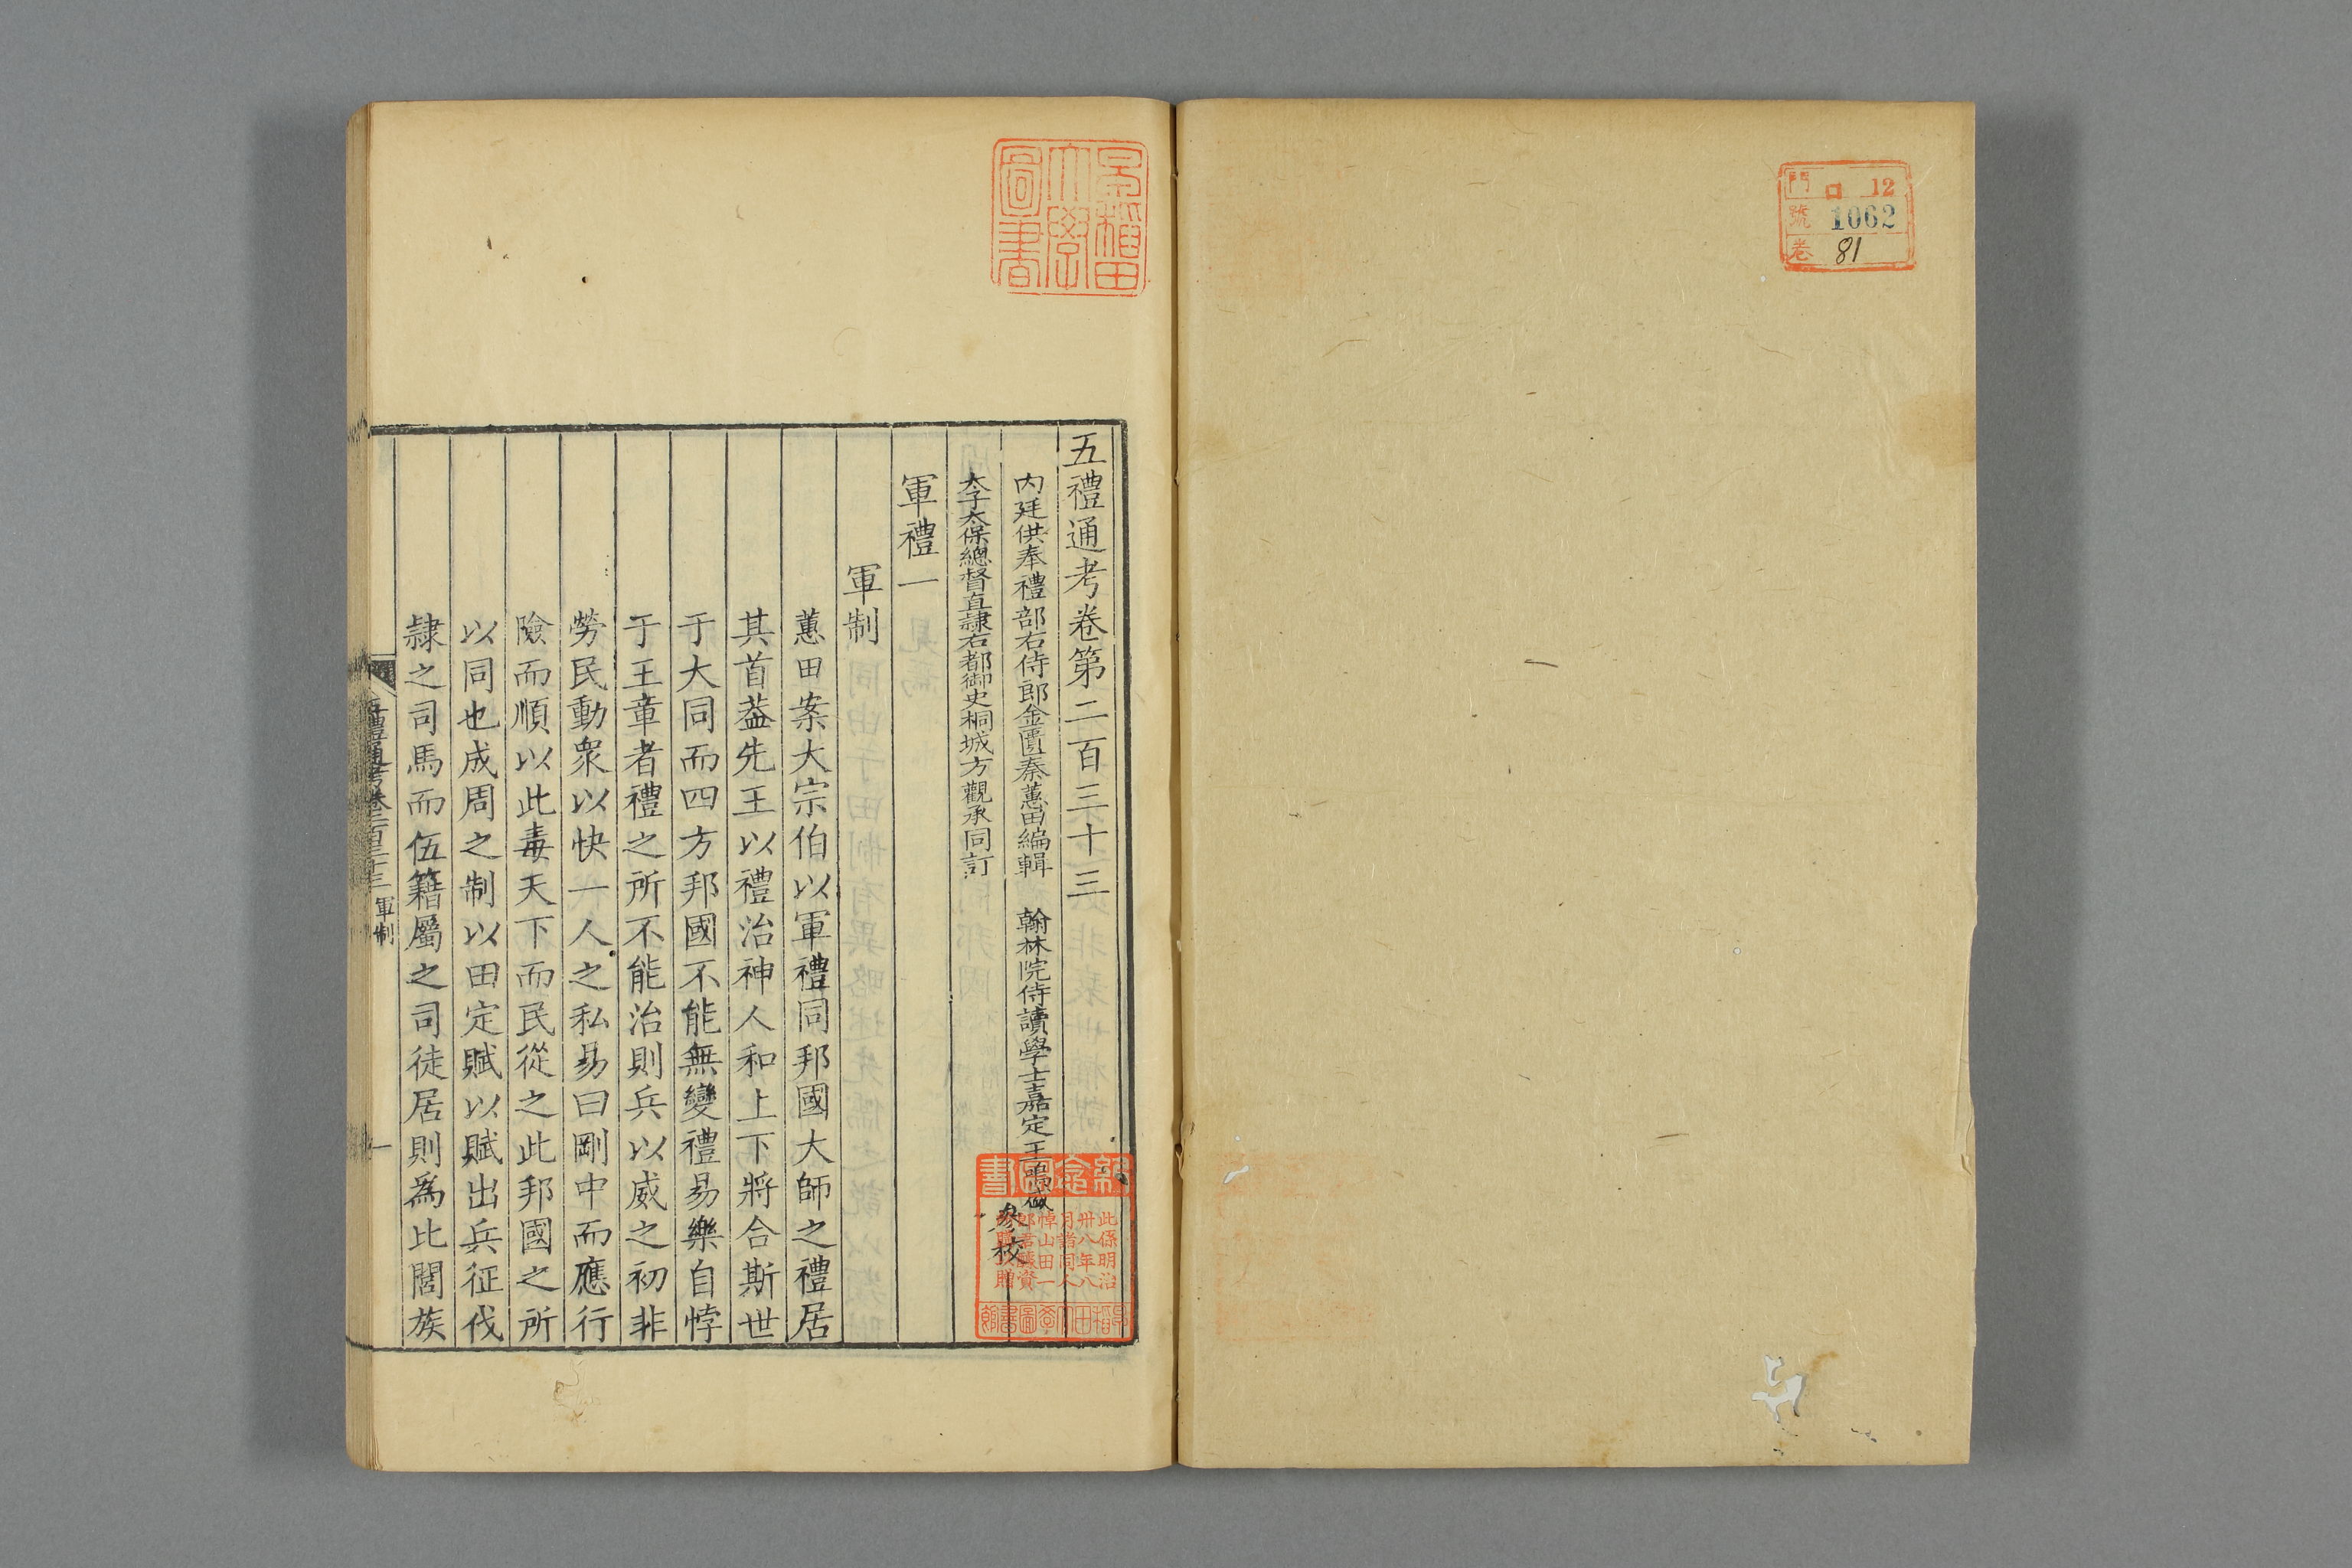 門 口 12
號 1062
卷 81
早稲田
大學
圖書
五禮通考卷第二百三十三
内廷供奉禮部右侍郎金匱秦蕙田編輯 翰林院侍讀學士嘉定王鳴盛
太子太保總督直隸右都御史桐城方觀承同訂 參校
軍禮一
軍制
蕙田案大宗伯以軍禮同邦國大師之禮居
其首葢先王以禮治神人和上下將合斯世
于大同而四方邦國不能無變禮易樂自悖
于王章者禮之所不能治則兵以威之初非
勞民動衆以快一人之私易曰剛中而應行
險而順以此毒天下而民從之此邦國之所
以同也成周之制以田定賦以賦出兵征伐
隷之司馬而伍籍屬之司徒居則為比閭族
五禮通考卷二百三十三 軍制 一
紀念圖書
此係明治
卅八年八
月諸同人
悼山田一
郎君醵資
早稲田大學圖書館